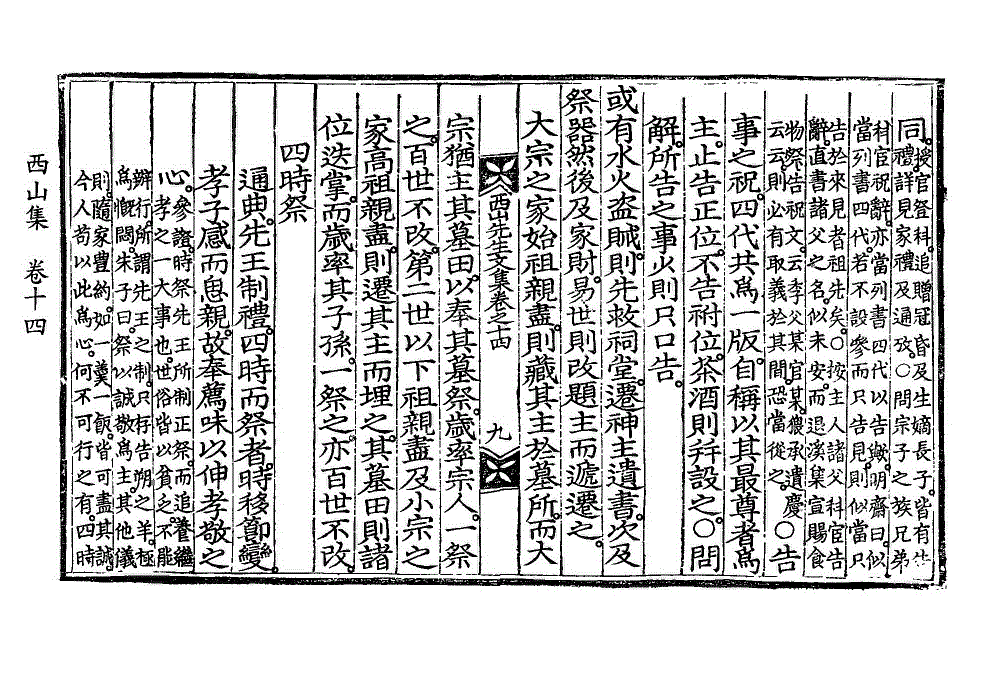 同。授官登科。追贈冠昏及生嫡長子。皆有告
禮。詳見家禮及通攷。○問宗子之族兄弟
科官祝辭。亦當列書四代以告歟。明齋曰。似
當列書四代。若不設參而只告見。則似當只
告於來見者祖先矣。○按主人諸父科官告
辭。直書諸父之名。似未安。而退溪集宣賜食
物祭告祝文。云季父某官某。猥承遺慶
云云。則必有取義於其間。恐當從之。○告
事之祝。四代共爲一版。自稱以其最尊者爲
主。止告正位。不告祔位。茶酒則幷設之。○問
解。所告之事火則只口告。
或有水火盜賊。則先救祠堂。遷神主遺書。次及
祭器。然後及家財。易世則改題主而遞遷之。
大宗之家。始祖親盡。則藏其主於墓所。而大
西山先生文集卷之十四
九
宗猶主其墓田。以奉其墓祭。歲率宗人。一祭
之。百世不改。第二世以下祖親盡及小宗之
家高祖親盡。則遷其主而埋之。其墓田則諸
位迭掌。而歲率其子孫。一祭之。亦百世不改
四時祭
通典。先王制禮。四時而祭者。時移節變。
孝子感而思親。故奉薦味以伸孝敬之
心。參證。時祭先王所制正祭。而追養繼
孝之一大事也。世俗皆以貧乏不能
辨行。所謂先王之制。只存告朔之羊。極
爲慨悶。朱子曰。祭以誠敬爲主。其他儀
則隨家豐約。如一羹一飯。皆可盡其誠。
今人苟以此爲心。何不可行之有。四時
西山集 卷十四